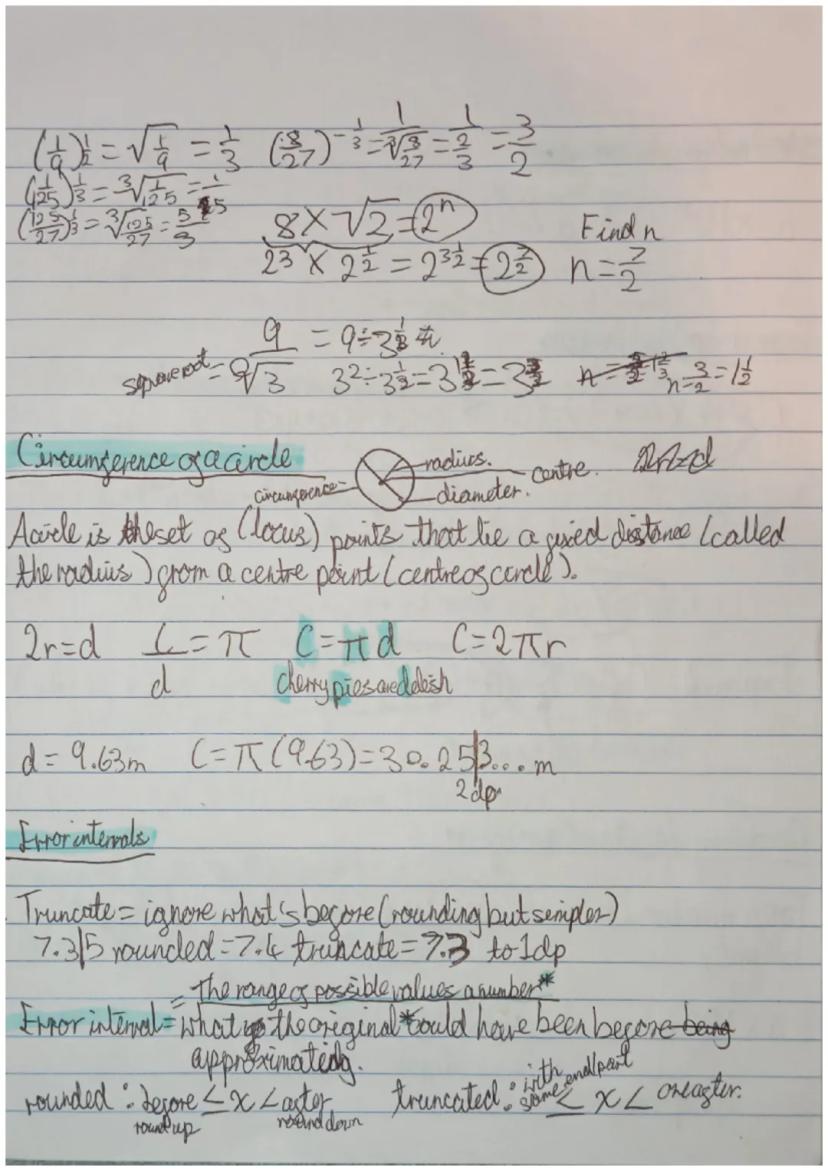 (1/9)^1/2 = √1/9 = 1/3 (8/27)^-1/3 = 1/∛8/27 = 1/2/3 = 3/2
(1/125)^1/3 = ∛1/125 = 1/5
(125/27)^1/3 = ∛125/27 = 5/3
8 × √2 = 2^n Find n
2^3 × 2^1/2 = 2^3 1/2 = 2^7/2 n = 7/2
9/√3 = 9 ÷ 3^1/2
square root = 3^2 ÷ 3^1/2 = 3^1 1/2 = 3^3/2 n = 3/2 = 1 1/2
Circumference of a circle
radius.
centre. 2r=d
circumference
diameter.
A circle is the set of (locus) points that lie a fixed distance (called
the radius) from a centre point (centre of circle).
2r=d C/d = π C=πd C=2πr
cherry pies are delish
d = 9.63m C=π(9.63)=30.25|3... m
2dp
Error intervals
Truncate = ignore what's before (rounding but simpler)
7.3|5 rounded = 7.4 truncate = 7.3 to 1dp
= The range of possible values a number*
Error interval = what the original *could have been before being
approximating.
rounded : before ≤ x < after truncated : with same end part ≤ x < one after.
round up round down